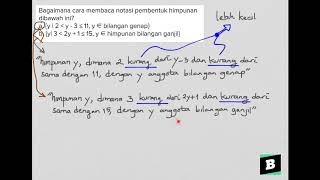 Bagaimana cara membaca notasi pembentuk himpunan
dibawah ini?
a. {y | 2 < y - 3 ≤ 11, y ∈ bilangan genap}
b. {y| 3 < 2y + 1 ≤ 15, y ∈ himpunan bilangan ganjil}
lebih kecil
"himpunan y, dimana 2 kurang dari y-3 dan kurang dari
sama dengan 11, dengan y anggota bilangan genap"
"himpunan y, dimana 3 kurang dari 2y+1 dan kurang dari
sama dengan 15, dengan y anggota bilangan ganjil"
B